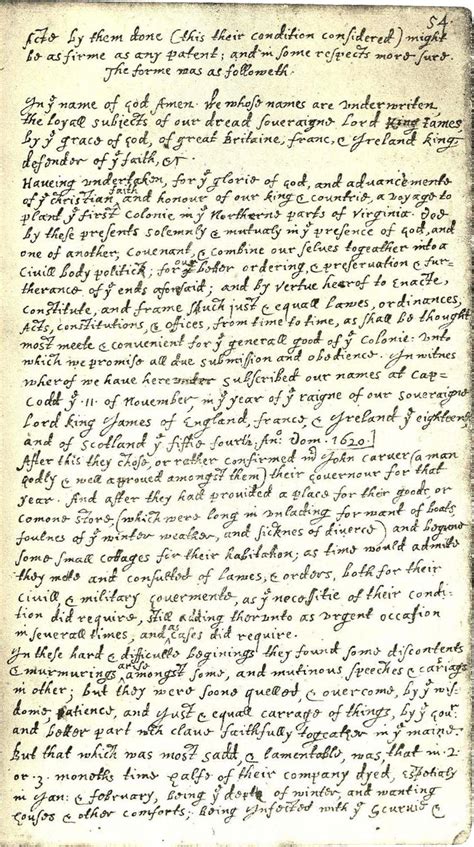 54
Acts by them done (this their condition considered) might
be as firme as any patent; and in some respects more sure.
The forme was as followeth.
In yͤ name of god Amen. We whose names are underwriten,
the loyall subjects of our dread soveraigne Lord King James,
by yͤ grace of god, of great Britaine, franc, & Ireland king,
defender of yͤ faith, &c.
Haveing undertaken, for yͤ glorie of god, and advancemente
of yͤ christian faith and honour of our king & countrie, a voyage to
plant yͤ first colonie in yͤ Northerne parts of Virginia. Doe
by these presents solemnly & mutualy in yͤ presence of god, and
one of another, covenant, & combine our selves togeather into a
Civill body politick; for our better ordering, & preservation & fur-
therance of yͤ ends aforesaid; and by vertue hearof to enacte,
constitute, and frame shuch just & equall lawes, ordinances,
Acts, constitutions, & offices, from time to time, as shall be thought
most meete & convenient for yͤ generall good of yͤ colonie: unto
which we promise all due submission and obedience. In witnes
wherof we have hereunder subscribed our names at Cap-
Codd yͤ .11. of November, in yͤ year of yͤ raigne of our soveraigne
Lord king James of England, france, & Ireland yͤ eighteenth
and of Scotland yͤ fiftie fourth. Anͦ: Dom. 1620.]
After this they chose, or rather confirmed mͬ John Carver (a man
godly & well approved amongst them) their governour for that
year. And after they had provided a place for their goods, or
comone store, (which were long in unlading for want of boats,
foulnes of yͤ winter weather, and sicknes of diverce) and begune
some small cottages for their habitation; as time would admite
they mete and consulted of lawes, & orders, both for their
civill & military govermente, as yͤ necessitie of their condi-
tion did require, still adding therunto as urgent occasion
in severall times, and as cases did require.
In these hard & difficulte beginings they found some discontents
& murmurings arise amongst some, and mutinous speeches & cariags
in other; but they were soone quelled & overcome, by yͤ wis-
dome, patience, and just & equall carrage of things, by yͤ govͬ:
and better part wᶜʰ clave faithfully togeather in yͤ maine.
But that which was most sadd, & lamentable, was, that in .2.
or .3. moneths time halfe of their company dyed, espetialy
in Jan: & february, being yͤ depth of winter, and wanting
houses & other comforts; being infected with yͤ scurvie &